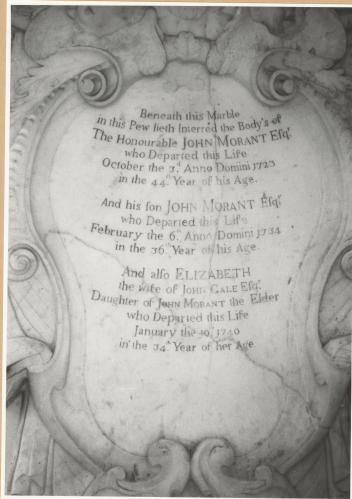 Beneath this Marble
in this Pew lieth Interred the Body's of
The Honourable JOHN MORANT Esqr.
who Departed this Life
October the 3.d Anno Domini 1723
in the 44.th Year of his Age.
And his son JOHN MORANT Esqr.
who Departed this Life
February the 6. Anno Domini 1734
in the 36. Year of his Age.
And also ELIZABETH
the wife of JOHN GALE Esqr.
Daughter of JOHN MORANT the Elder
who Departed this Life
January the 1740
in the 34. Year of her Age